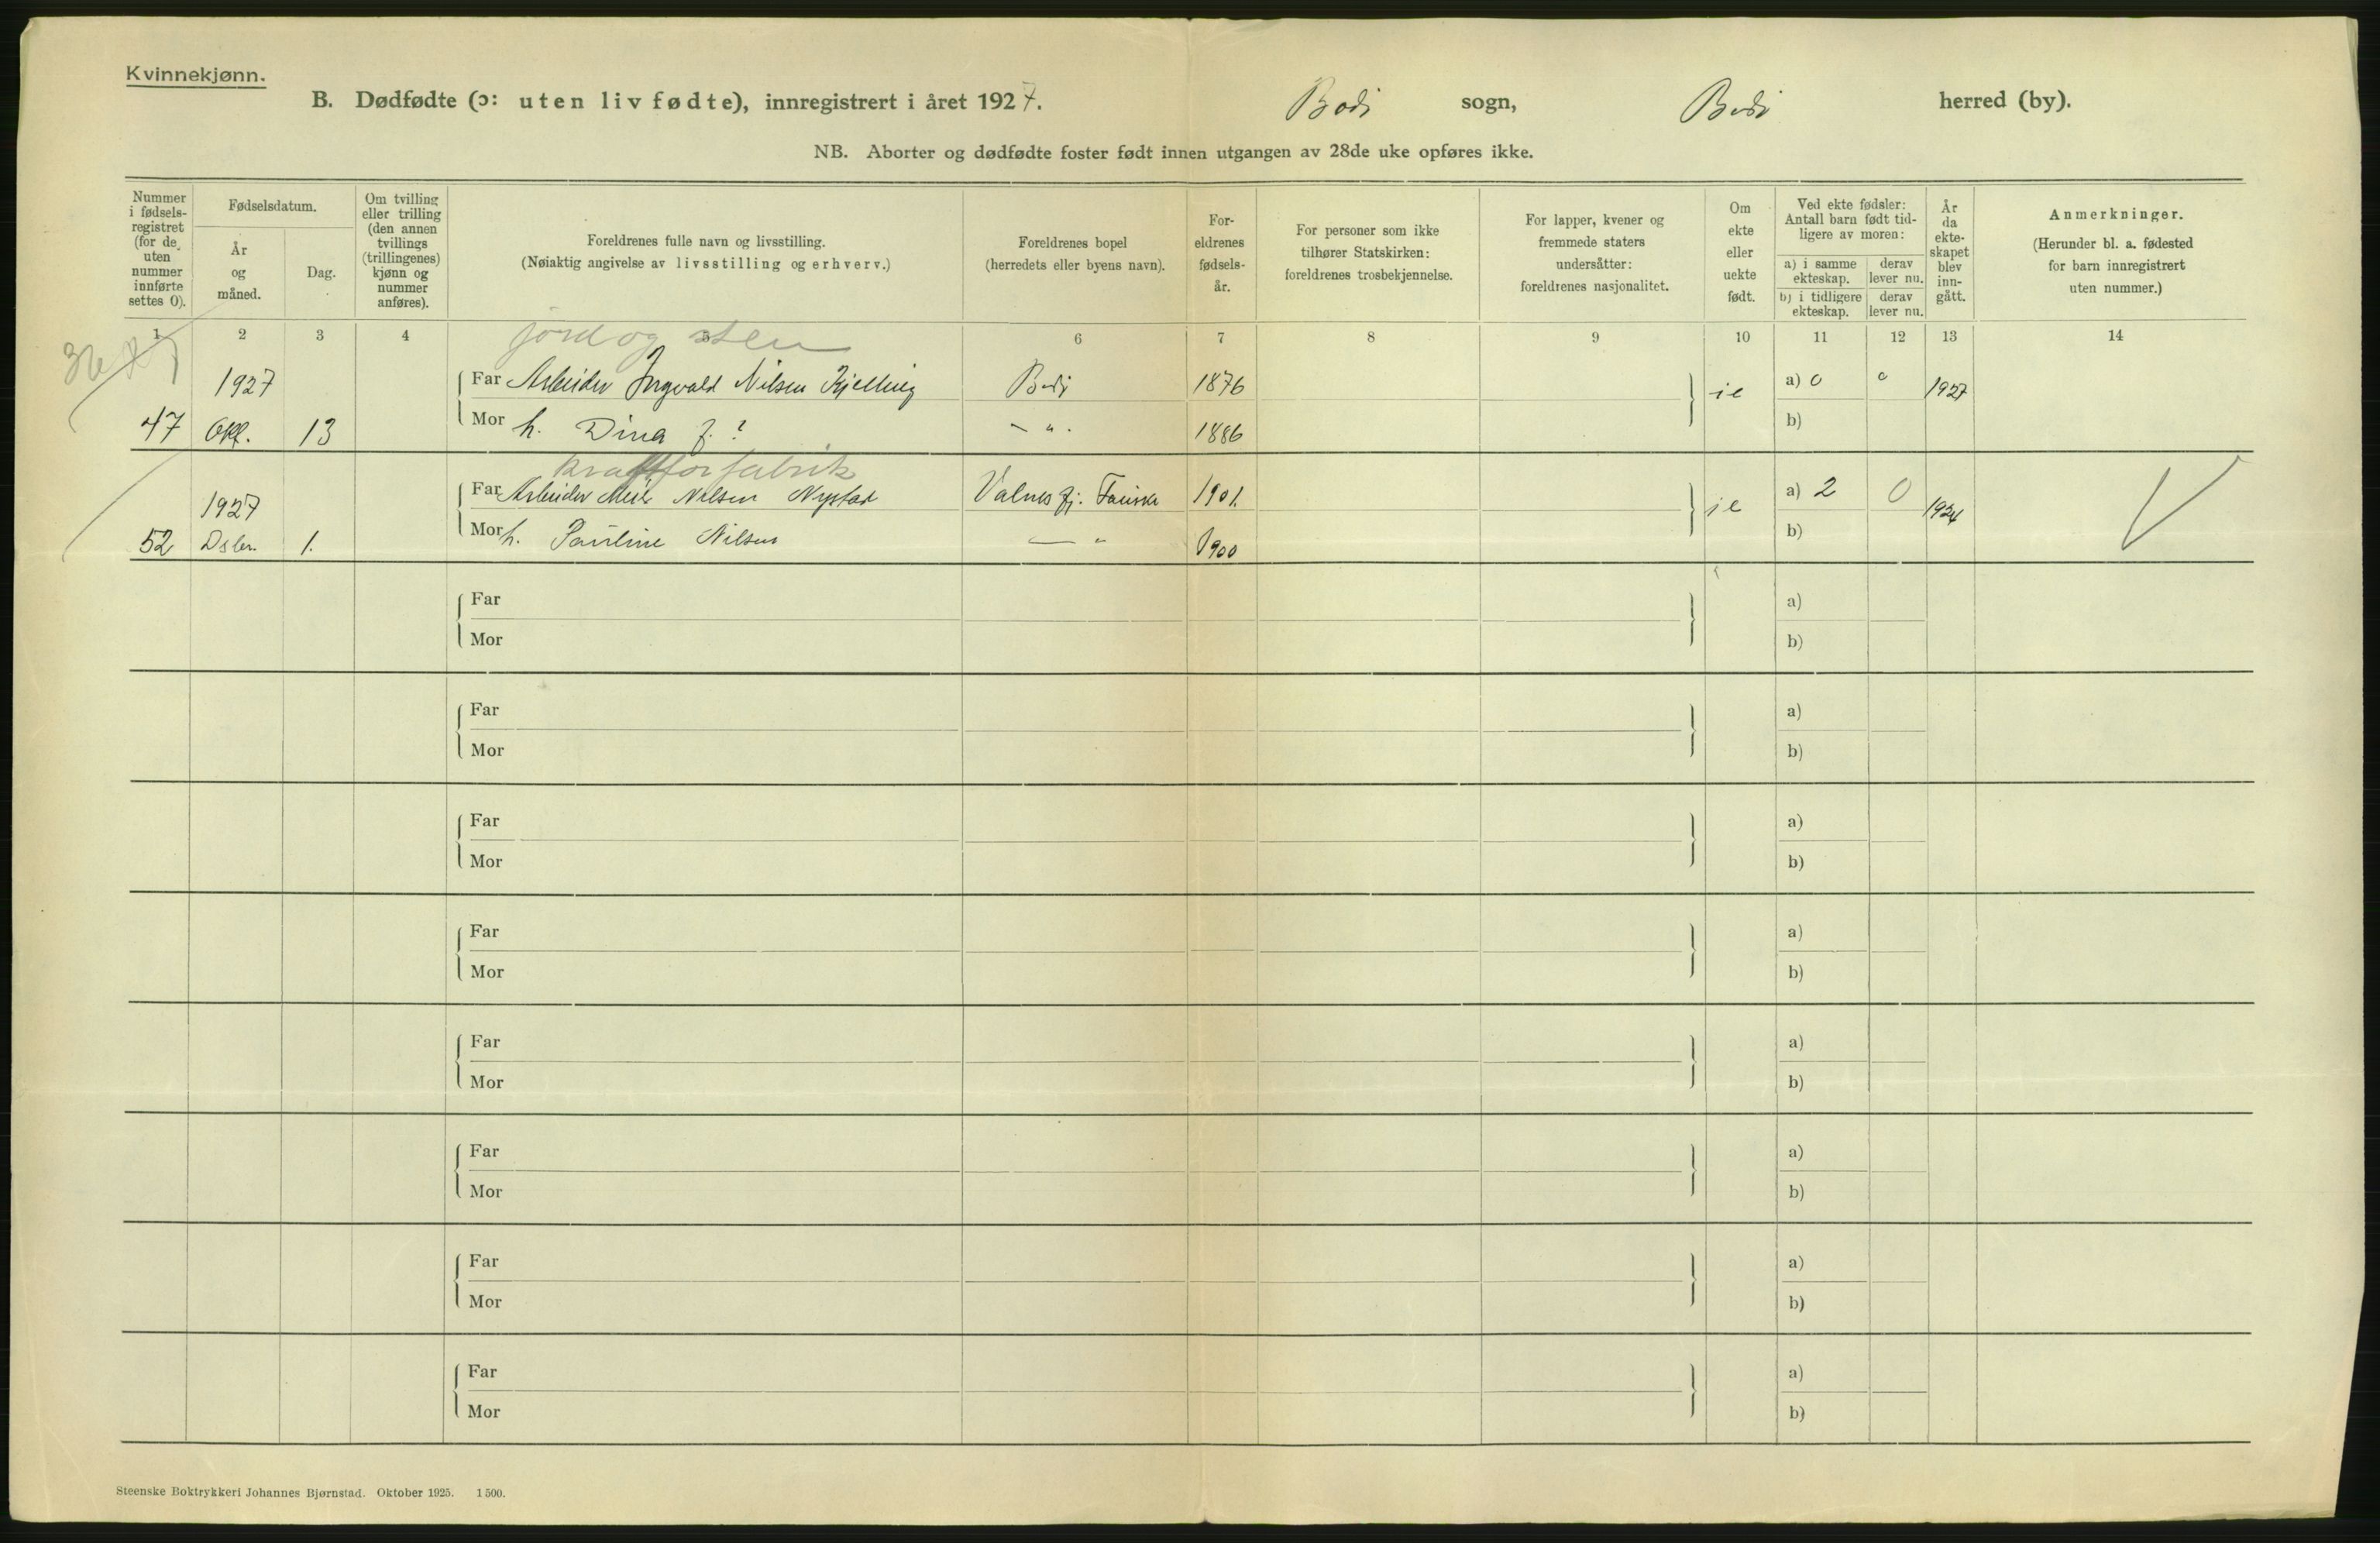 Kvinnekjønn.
B. Dødfødte (ɔ: uten liv fødte), innregistrert i året 1927. Bodø sogn, Bodø herred (by).
NB. Aborter og dødfødte foster født innen utgangen av 28de uke opføres ikke.
Nummer i fødsels-registret (for de uten nummer innførte settes 0).
Fødselsdatum.
År og måned.
Dag.
Om tvilling eller trilling (den annen tvillings (trillingenes) kjønn og nummer anføres).
Foreldrenes fulle navn og livsstilling.
(Nøiaktig angivelse av livsstilling og erhverv.)
Foreldrenes bopel
(herredets eller byens navn).
For-eldrenes fødsels-år.
For personer som ikke tilhører Statskirken: foreldrenes trosbekjennelse.
For lapper, kvener og fremmede staters undersåtter: foreldrenes nasjonalitet.
Om ekte eller uekte født.
Ved ekte fødsler: Antall barn født tid-ligere av moren:
a) i samme ekteskap.
derav lever nu.
b) i tidligere ekteskap.
derav lever nu.
År da ekte-skapet blev inn-gått.
Anmerkninger.
(Herunder bl. a. fødested for barn innregistrert uten nummer.)
1 2 3 4 5 6 7 8 9 10 11 12 13 14
jord og sten
1927 Far Arbeider Ingvald Nilsen Kjelling Bodø 1876 ie a) 0 0 1927
47 Okt. 13 Mor h. Dina f. ? — " . 1886 b)
kraftforfabrik
1927 Far Arbeider Nilsen Nystad Valnesfj. Fauske 1901. ie a) 2 0 1924
52 Dsbr. 1. Mor h. Pauline Nilsen — " 1900 b)
Far a)
Mor b)
Far a)
Mor b)
Far a)
Mor b)
Far a)
Mor b)
Far a)
Mor b)
Far a)
Mor b)
Far a)
Mor b)
Far a)
Mor b)
Steenske Boktrykkeri Johannes Bjørnstad. Oktober 1925. 1500.